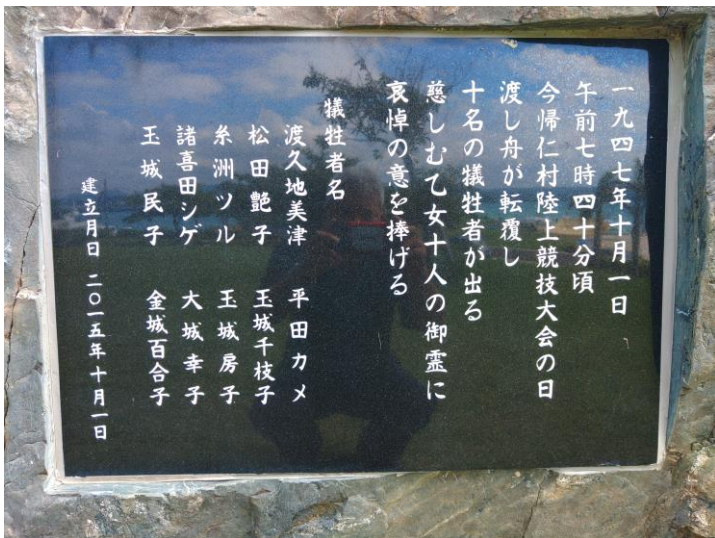 一九四七年十月一日
午前七時四十分頃
今帰仁村陸上競技大会の日
渡し舟が転覆し
十名の犠牲者が出る
慈しむ乙女十人の御霊に
哀悼の意を捧げる
犠牲者名
渡久地美津 平田カメ
松田艶子 玉城千枝子
糸洲ツル 玉城房子
諸喜田シゲ 大城幸子
玉城民子 金城百合子
建立月日 二〇一五年十月一日